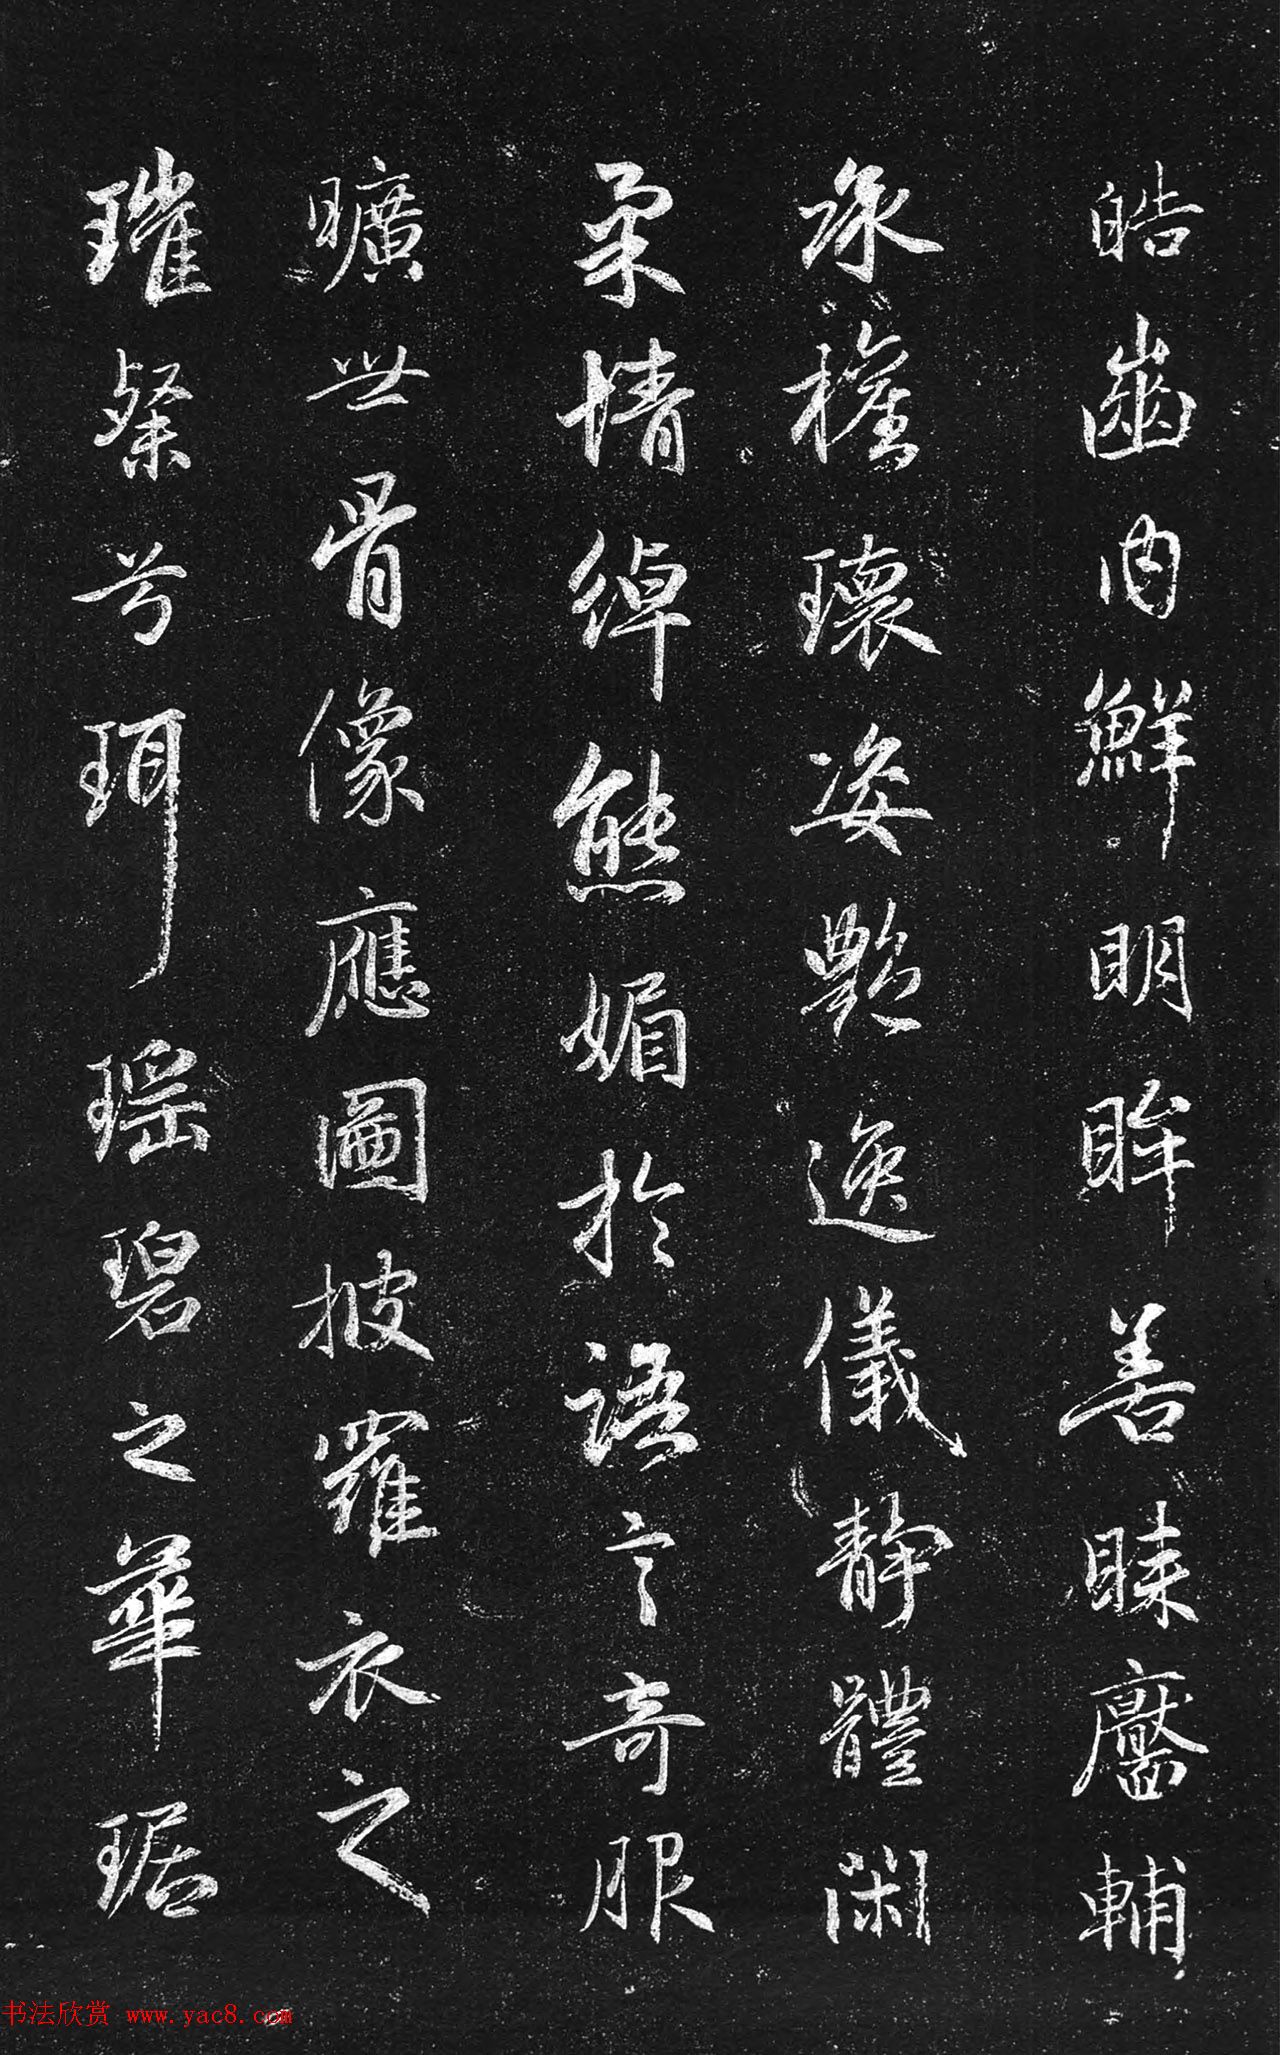 皓齒內鮮明眸善睞靨輔
承權瓌姿艷逸儀靜體閑
柔情綽態媚於語言奇服
曠世骨像應圖披羅衣之
璀粲兮珥瑶碧之華琚
书法欣赏 www.yac8.com